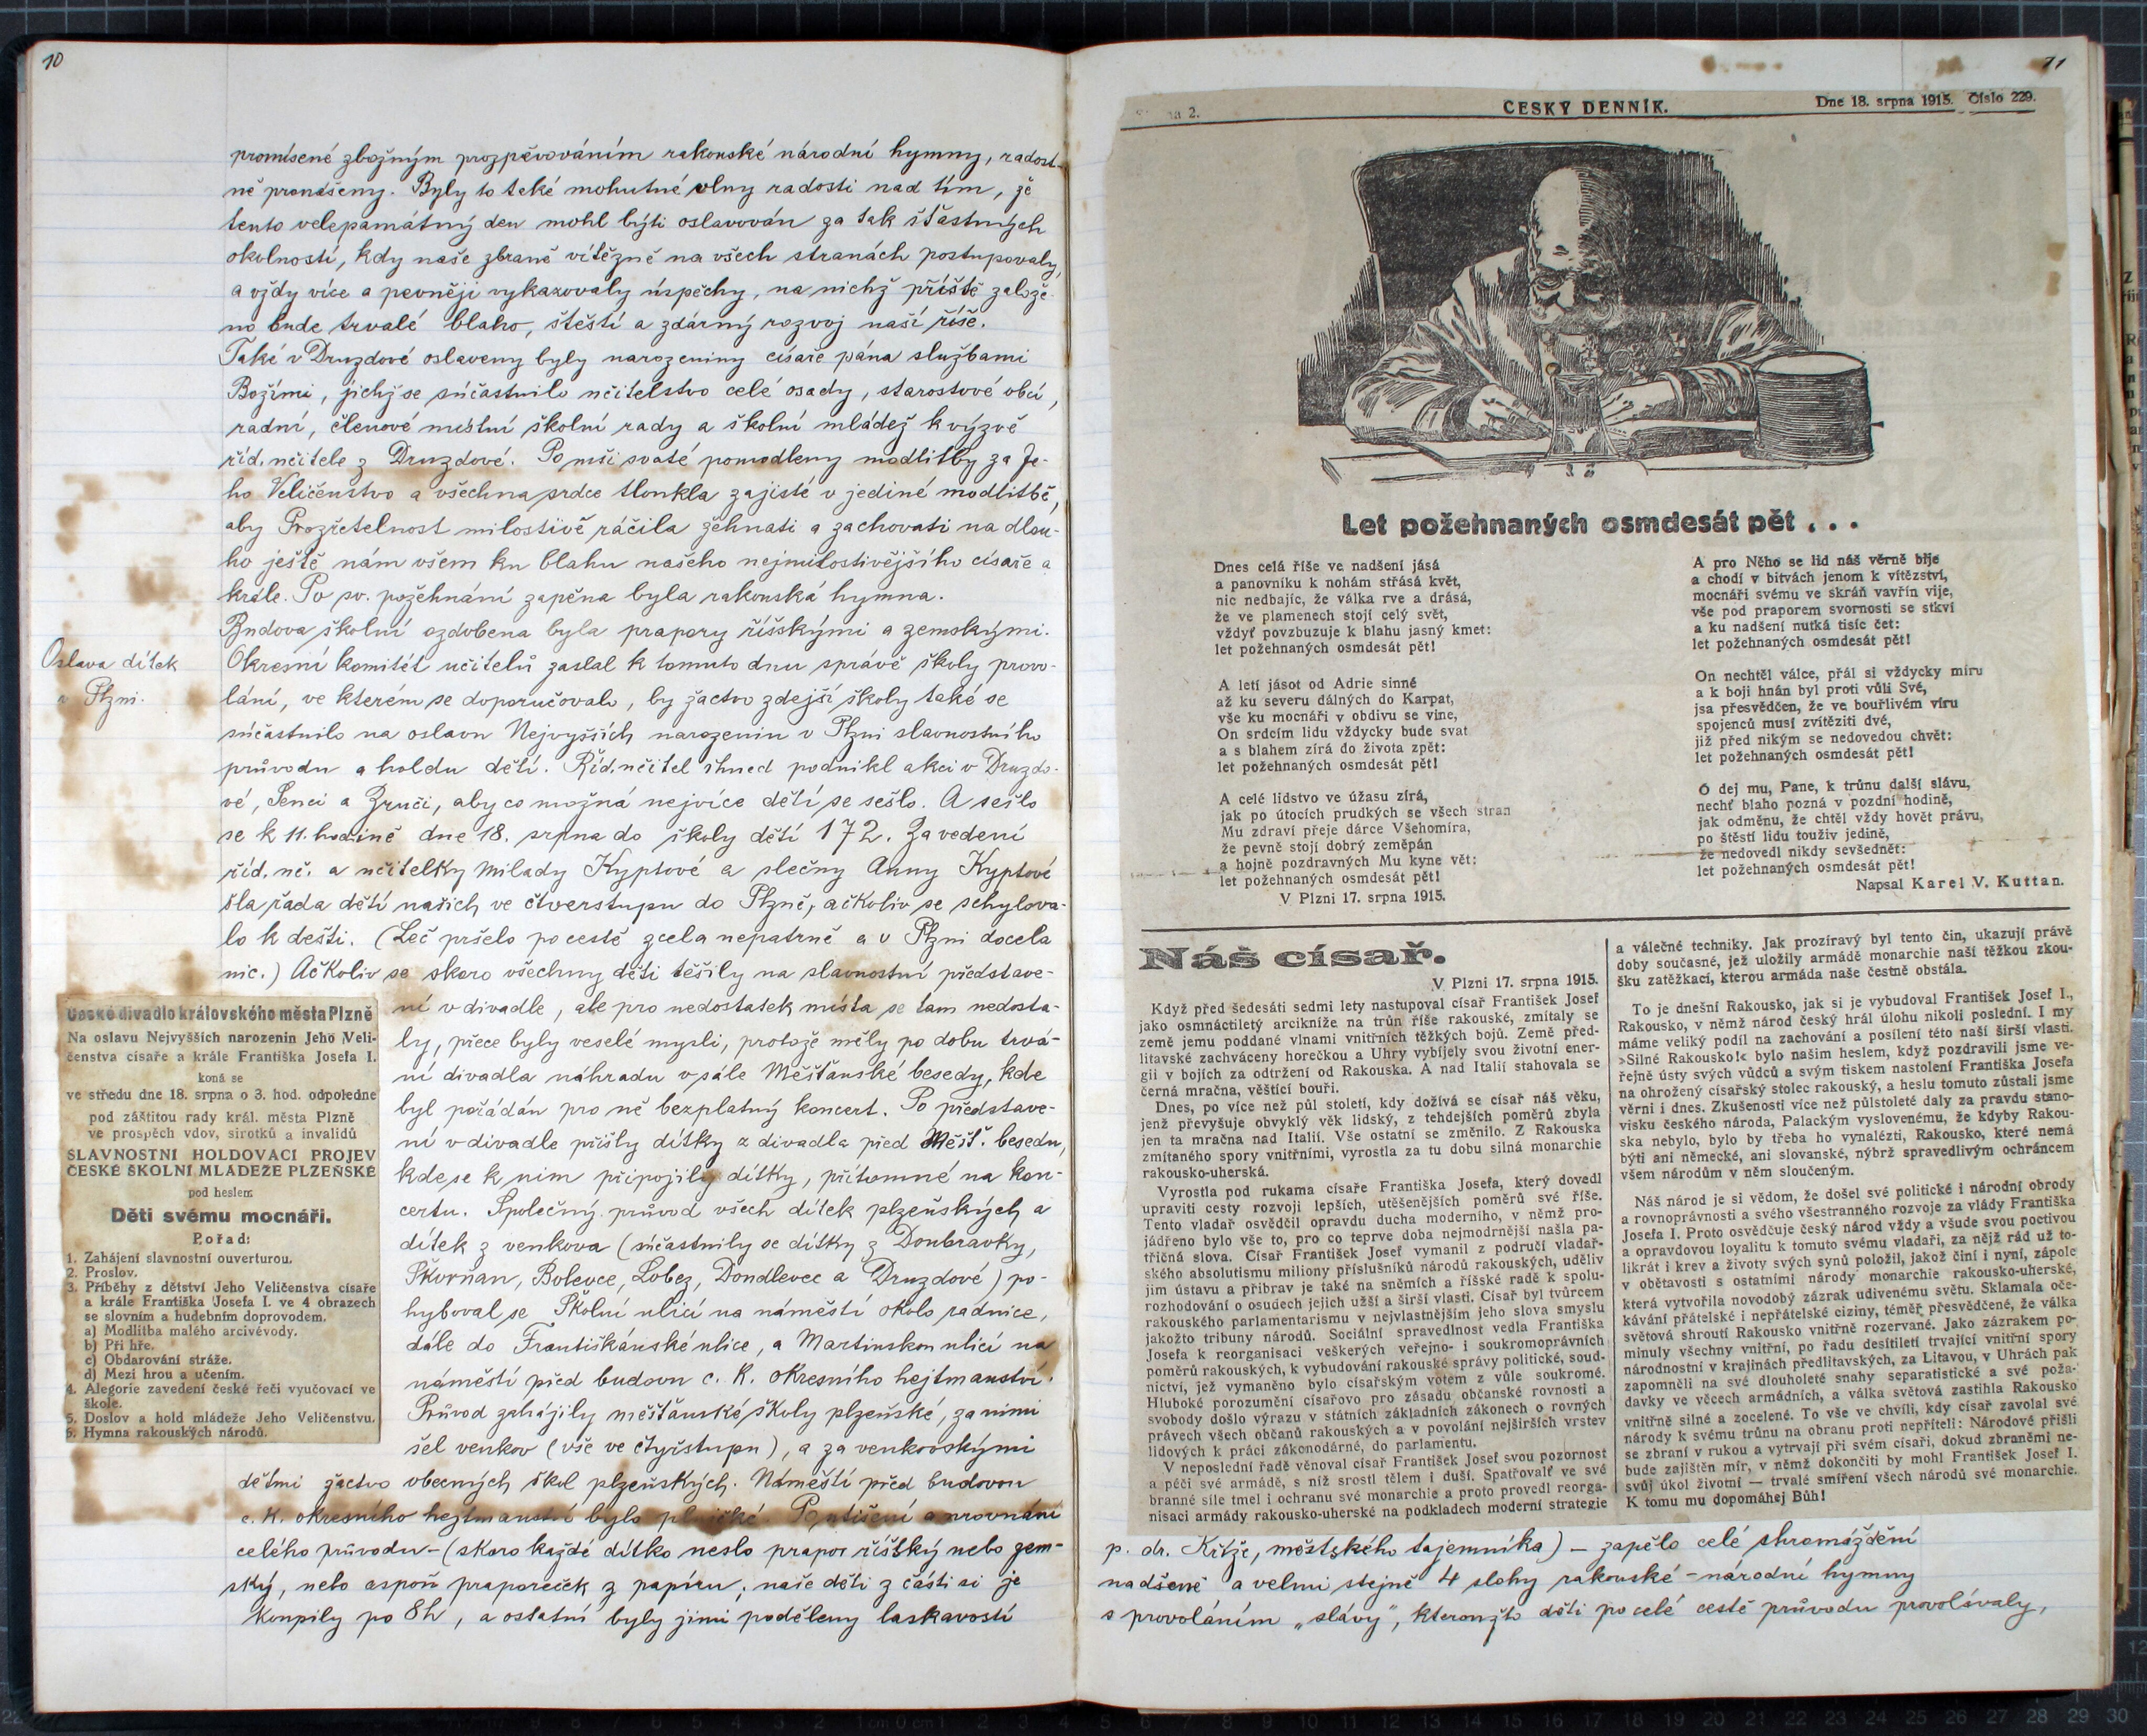 10
promísené zbožným prozpěvováním rakouské národní hymny, radost-
ně pronášeny. Byly to také mohutné vlny radosti nad tím, že
tento velepamátný den mohl býti oslavován za tak šťastných
okolností, kdy naše zbraně vítězně na všech stranách postupovaly,
a vždy více a pevněji vykazovaly úspěchy, na nichž příště založe-
no bude trvalé blaho, štěstí a zdárný rozvoj naší říše.
Také v Druzdové oslaveny byly narozeniny císaře pána službami
Božími, jichž se súčastnilo učitelstvo celé osady, starostové obcí,
radní, členové místní školní rady a školní mládež k výzvě
říd. učitele z Druzdové. Po mši svaté pomodleny modlitby za Je-
ho Veličenstvo a všechna srdce tloukla zajisté v jediné modlitbě,
aby Prozřetelnost milostivě ráčila žehnati a zachovati na dlou-
ho ještě nám všem ku blahu našeho nejmilostivějšího císaře a
krále. Po sv. požehnání zapěna byla rakouská hymna.
Budova školní ozdobena byla prapory říšskými a zemskými.
Oslava dítek
v Plzni.
Okresní komitét učitelů zaslal k tomuto dnu správě školy provo-
lání, ve kterém se doporučovalo, by žactvo zdejší školy také se
súčastnilo na oslavu Nejvyšších narozenin v Plzni slavnostního
průvodu a holdu dětí. Říd. učitel ihned podnikl akci v Druzdo-
vé, Senci a Zruči, aby co možná nejvíce dětí se sešlo. A sešlo
se k 11. hodině dne 18. srpna do školy dětí 172. Za vedení
říd. uč. a učitelky Milady Kyptové a slečny Anny Kyptové
šla řada dětí našich ve čtverstupu do Plzně, ačkoliv se schylova-
lo k dešti. (Leč pršelo po cestě zcela nepatrně a v Plzni docela
nic.) Ačkoliv se skoro všechny děti těšily na slavnostní představe-
ní v divadle, ale pro nedostatek místa se tam nedosta-
ly, přece byly veselé mysli, protože měly po dobu trvá-
ní divadla náhradu v sále Měšťanské besedy, kde
byl pořádán pro ně bezplatný koncert. Po představe-
ní v divadle přišly dítky z divadla před Měšť. besedu,
kde se k nim připojily dítky, přítomné na kon-
certu. Společný průvod všech dítek plzeňských a
dítek z venkova (súčastnily se dítky z Doubravky,
Škvrňan, Bolevce, Lobez, Doudlevec a Druzdové) po-
hyboval se Školní ulicí na náměstí okolo radnice,
dále do Františkánské ulice, a Martinskou ulicí na
náměstí před budovu c. k. okresního hejtmanství.
Průvod zahájily měšťanské školy plzeňské, za nimi
šel venkov (vše ve čtyřstupu), a za venkovskými
dětmi žactvo obecných škol plzeňských. Náměstí před budovou
c. k. okresního hejtmanství bylo plničké. Po utišení a urovnání
celého průvodu – (skoro každé dítko neslo prapor říšský nebo zem-
ský, nebo aspoň praporeček z papíru; naše děti z části si je
koupily po 8h, a ostatní byly jimi poděleny laskavostí
České divadlo královského města Plzně
Na oslavu Nejvyšších narozenin Jeho Veli-
čenstva císaře a krále Františka Josefa I.
koná se
ve středu dne 18. srpna o 3. hod. odpoledne
pod záštitou rady král. města Plzně
ve prospěch vdov, sirotků a invalidů
SLAVNOSTNÍ HOLDOVACÍ PROJEV
ČESKÉ ŠKOLNÍ MLÁDEŽE PLZEŇSKÉ
pod heslem
Děti svému mocnáři.
Pořad:
1. Zahájení slavnostní ouverturou.
2. Proslov.
3. Příběhy z dětství Jeho Veličenstva císaře
a krále Františka Josefa I. ve 4 obrazech
se slovním a hudebním doprovodem.
a) Modlitba malého arcivévody.
b) Při hře.
c) Obdarování stráže.
d) Mezi hrou a učením.
4. Alegorie zavedení české řeči vyučovací ve
škole.
5. Doslov a hold mládeže Jeho Veličenstvu.
6. Hymna rakouských národů.
11
2.
ČESKÝ DENNÍK.
Dne 18. srpna 1915. Číslo 229.
Let požehnaných osmdesát pět . . .
Dnes celá říše ve nadšení jásá
a panovníku k nohám střásá květ,
nic nedbajíc, že válka rve a drásá,
že ve plamenech stojí celý svět,
vždyť povzbuzuje k blahu jasný kmet:
let požehnaných osmdesát pět!
A letí jásot od Adrie sinné
až ku severu dálných do Karpat,
vše ku mocnáři v obdivu se vine,
On srdcím lidu vždycky bude svat
a s blahem zírá do života zpět:
let požehnaných osmdesát pět!
A celé lidstvo ve úžasu zírá,
jak po útocích prudkých se všech stran
Mu zdraví přeje dárce Všehomíra,
že pevně stojí dobrý zeměpán
a hojně pozdravných Mu kyne vět:
let požehnaných osmdesát pět!
V Plzni 17. srpna 1915.
A pro Něho se lid náš věrně bije
a chodí v bitvách jenom k vítězství,
mocnáři svému ve skráň vavřín vije,
vše pod praporem svornosti se stkví
a ku nadšení nutká tisíc čet:
let požehnaných osmdesát pět!
On nechtěl válce, přál si vždycky míru
a k boji hnán byl proti vůli Své,
jsa přesvědčen, že ve bouřlivém víru
spojenců musí zvítěziti dvé,
již před nikým se nedovedou chvět:
let požehnaných osmdesát pět!
Ó dej mu, Pane, k trůnu další slávu,
nechť blaho pozná v pozdní hodině,
jak odměnu, že chtěl vždy hovět právu,
po štěstí lidu touživ jedině,
že nedovedl nikdy sevšednět:
let požehnaných osmdesát pět!
Napsal Karel V. Kuttan.
Náš císař.
V Plzni 17. srpna 1915.
Když před šedesáti sedmi lety nastupoval císař František Josef
jako osmnáctiletý arcikníže na trůn říše rakouské, zmítaly se
země jemu poddané vlnami vnitřních těžkých bojů. Země před-
litavské zachváceny horečkou a Uhry vybíjely svou životní ener-
gii v bojích za odtržení od Rakouska. A nad Italií stahovala se
černá mračna, věštící bouři.
Dnes, po více než půl století, kdy dožívá se císař náš věku,
jenž převyšuje obvyklý věk lidský, z tehdejších poměrů zbyla
jen ta mračna nad Italií. Vše ostatní se změnilo. Z Rakouska
zmítaného spory vnitřními, vyrostla za tu dobu silná monarchie
rakousko-uherská.
Vyrostla pod rukama císaře Františka Josefa, který dovedl
upraviti cesty rozvoji lepších, utěšenějších poměrů své říše.
Tento vladař osvědčil opravdu ducha moderního, v němž pro-
jádřeno bylo vše to, pro co teprve doba nejmodrnější našla pa-
třičná slova. Císař František Josef vymanil z područí vladař-
ského absolutismu miliony příslušníků národů rakouských, uděliv
jim ústavu a přibrav je také na sněmích a říšské radě k spolu-
rozhodování o osudech jejich užší a širší vlasti. Císař byl tvůrcem
rakouského parlamentarismu v nejvlastnějším jeho slova smyslu
jakožto tribuny národů. Sociální spravedlnost vedla Františka
Josefa k reorganisaci veškerých veřejno- i soukromoprávních
poměrů rakouských, k vybudování rakouské správy politické, soud-
nictví, jež vymaněno bylo císařským votem z vůle soukromé.
Hluboké porozumění císařovo pro zásadu občanské rovnosti a
svobody došlo výrazu v státních základních zákonech o rovných
právech všech občanů rakouských a v povolání nejširších vrstev
lidových k práci zákonodárné, do parlamentu.
V neposlední řadě věnoval císař František Josef svou pozornost
a péči své armádě, s níž srostl tělem i duší. Spatřovalť ve své
branné síle tmel i ochranu své monarchie a proto provedl reorga-
nisaci armády rakousko-uherské na podkladech moderní strategie
a válečné techniky. Jak prozíravý byl tento čin, ukazují právě
doby současné, jež uložily armádě monarchie naší těžkou zkou-
šku zatěžkací, kterou armáda naše čestně obstála.
To je dnešní Rakousko, jak si je vybudoval František Josef I.,
Rakousko, v němž národ český hrál úlohu nikoli poslední. I my
máme veliký podíl na zachování a posílení této naší širší vlasti.
>Silné Rakousko!< bylo našim heslem, když pozdravili jsme ve-
řejně ústy svých vůdců a svým tiskem nastolení Františka Josefa
na ohrožený císařský stolec rakouský, a heslu tomuto zůstali jsme
věrni i dnes. Zkušenosti více než půlstoleté daly za pravdu stano-
visku českého národa, Palackým vyslovenému, že kdyby Rakou-
ska nebylo, bylo by třeba ho vynalézti, Rakousko, které nemá
býti ani německé, ani slovanské, nýbrž spravedlivým ochráncem
všem národům v něm sloučeným.
Náš národ je si vědom, že došel své politické i národní obrody
a rovnoprávnosti a svého všestranného rozvoje za vlády Františka
Josefa I. Proto osvědčuje český národ vždy a všude svou poctivou
a opravdovou loyalitu k tomuto svému vladaři, za nějž rád už to-
likrát i krev a životy svých synů položil, jakož činí i nyní, zápole
v obětavosti s ostatními národy monarchie rakousko-uherské,
která vytvořila novodobý zázrak udivenému světu. Sklamala oče-
kávání přátelské i nepřátelské ciziny, téměř přesvědčené, že válka
světová shroutí Rakousko vnitřně rozervané. Jako zázrakem po-
minuly všechny vnitřní, po řadu desítiletí trvající vnitřní spory
národnostní v krajinách předlitavských, za Litavou, v Uhrách pak
zapomněli na své dlouholeté snahy separatistické a své poža-
davky ve věcech armádních, a válka světová zastihla Rakousko
vnitřně silné a zocelené. To vše ve chvíli, kdy císař zavolal své
národy k svému trůnu na obranu proti nepříteli: Národové přišli
se zbraní v rukou a vytrvají při svém císaři, dokud zbraněmi ne-
bude zajištěn mír, v němž dokončiti by mohl František Josef I.
svůj úkol životní — trvalé smíření všech národů své monarchie.
K tomu mu dopomáhej Bůh!
p. dr. Křtže, městského tajemníka) – zapělo celé shromáždění
nadšeně a velmi stejně 4 slohy rakouské – národní hymny
s provoláním „slávy", kteroužto děti po celé cestě průvodu provolávaly,